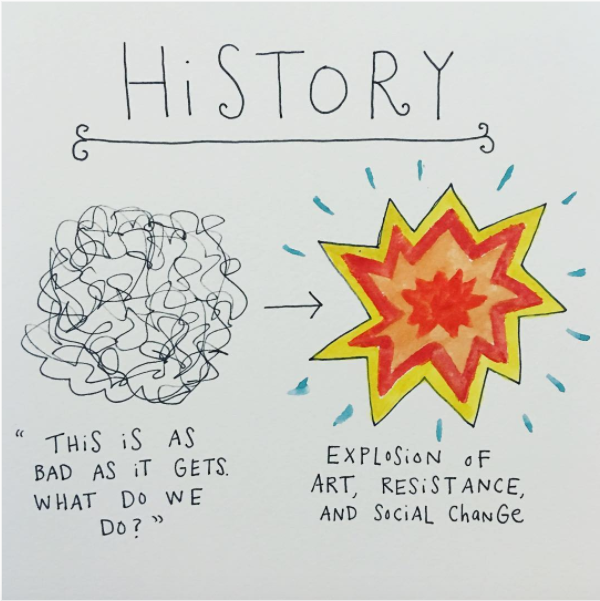 HiSTORY
“ THiS iS AS
BAD AS iT GETS.
WHAT DO WE
DO? ”
EXPLOSiON OF
ART, RESiSTANCE,
AND SOCiAL CHANGE